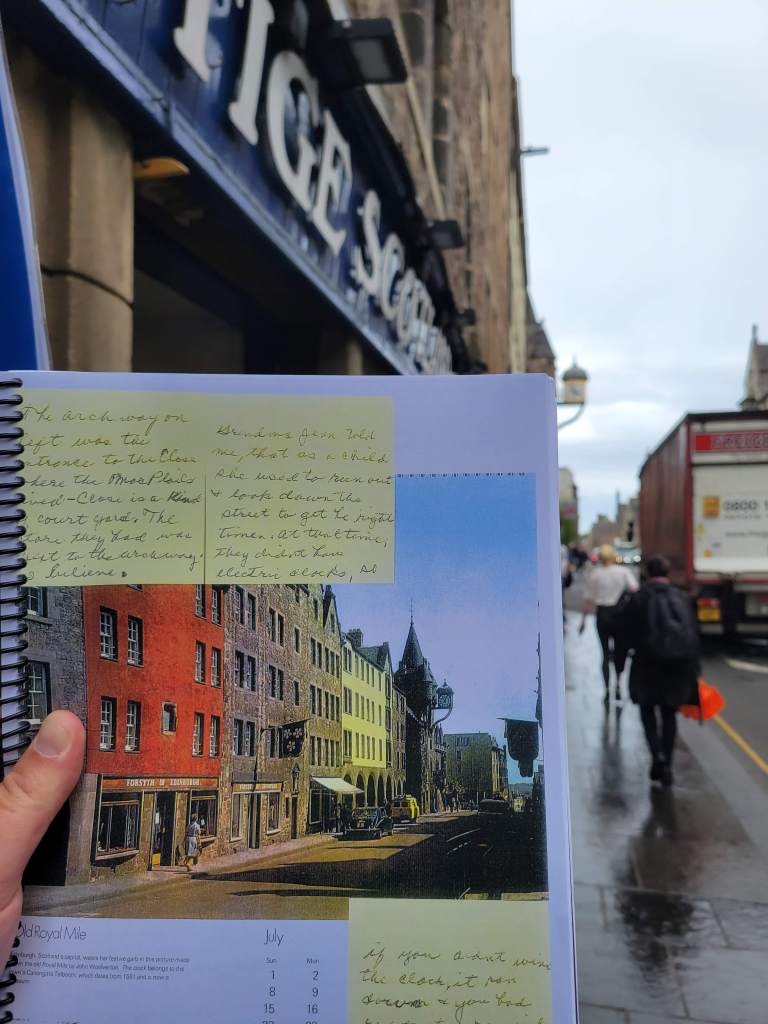 TIGE SCOTLAND
The archway on
left was the
entrance to the Close
here the
lived-Close is a Kind
court yard. The
store they had was
next to the archway.
Juliene.
Grandma Jean told
me, that as a child
she used to run out
& look down the
street to get the right
times. At that time,
they didn't have
electric clocks, so
FORSYTH OF EDINBURGH
Old Royal Mile
Edinburgh, Scotland's capital, wears her festive garb in this picture made
on the old Royal Mile by John Woolverton. The clock belongs to the
town's Canongate Tolbooth, which dates from 1591 and is now a
museum.
July
Sun Mon
1 2
8 9
15 16
22 23
if you didn't wind
the clock, it ran
down & you had
0800